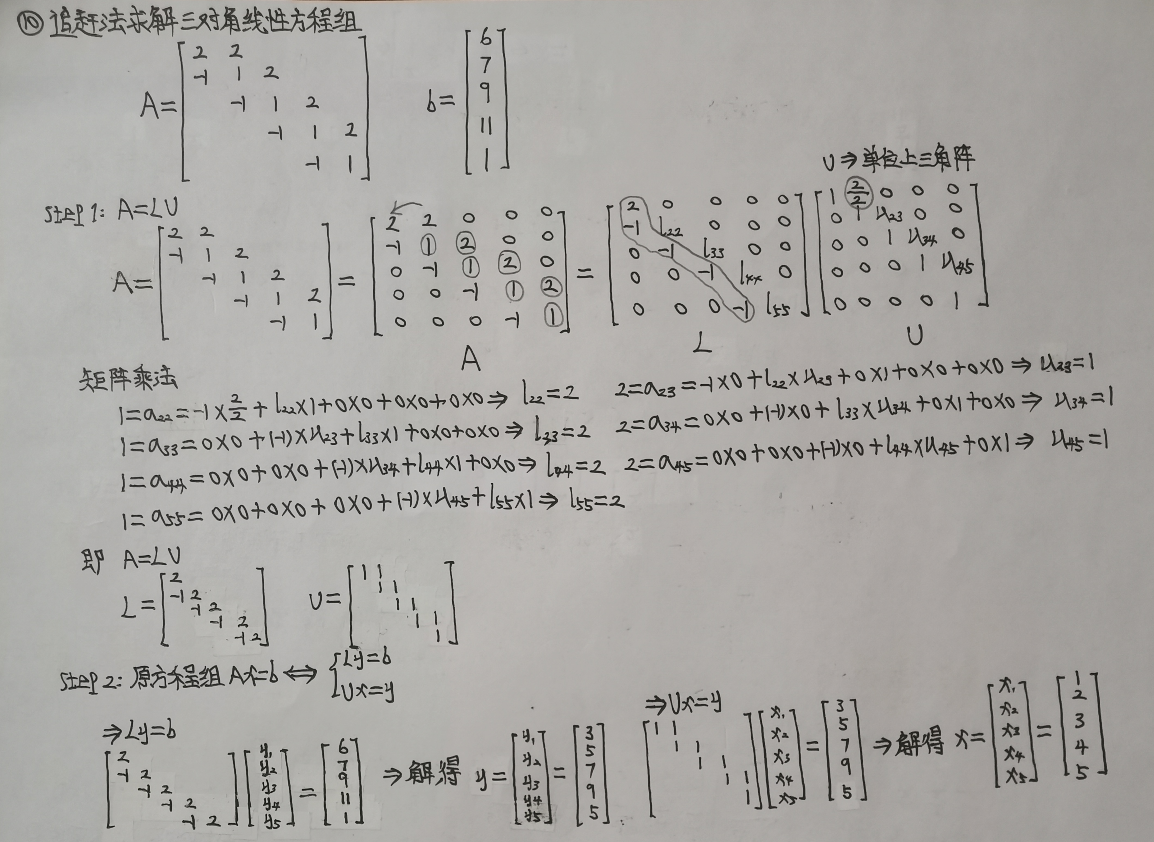 ⑩ 追赶法求解三对角线性方程组
A= [2 2
-1 1 2
-1 1 2
-1 1 2
-1 1]
b= [6
7
9
11
1]
U⇒单位上三角阵
step1: A=LU
A= [2 2
-1 1 2
-1 1 2
-1 1 2
-1 1]
= [2 2 0 0 0
-1 1 2 0 0
0 -1 1 2 0
0 0 -1 1 2
0 0 0 -1 1]
A
= [2 0 0 0 0
-1 l22 0 0 0
0 -1 l33 0 0
0 0 -1 l44 0
0 0 0 -1 l55]
L
[1 2/2 0 0 0
0 1 u23 0 0
0 0 1 u34 0
0 0 0 1 u45
0 0 0 0 1]
U
矩阵乘法
1=a22=-1×2/2+l22×1+0×0+0×0+0×0⇒l22=2 2=a23=-1×0+l22×u23+0×1+0×0+0×0⇒u23=1
1=a33=0×0+(-1)×u23+l33×1+0×0+0×0⇒l33=2 2=a34=0×0+(-1)×0+l33×u34+0×1+0×0⇒u34=1
1=a44=0×0+0×0+(-1)×u34+l44×1+0×0⇒l44=2 2=a45=0×0+0×0+(-1)×0+l44×u45+0×1⇒u45=1
1=a55=0×0+0×0+0×0+(-1)×u45+l55×1⇒l55=2
即 A=LU
L= [2
-1 2
-1 2
-1 2
-1 2]
U= [1 1
1 1
1 1
1 1
1]
step2: 原方程组Ax=b⇔ {Ly=b
Ux=y
⇒Ly=b
[2
-1 2
-1 2
-1 2
-1 2]
[y1
y2
y3
y4
y5]
= [6
7
9
11
1]
⇒解得 y= [y1
y2
y3
y4
y5]
= [3
5
7
9
5]
⇒Ux=y
[1 1
1 1
1 1
1 1
1]
[x1
x2
x3
x4
x5]
= [3
5
7
9
5]
⇒解得 x= [x1
x2
x3
x4
x5]
= [1
2
3
4
5]